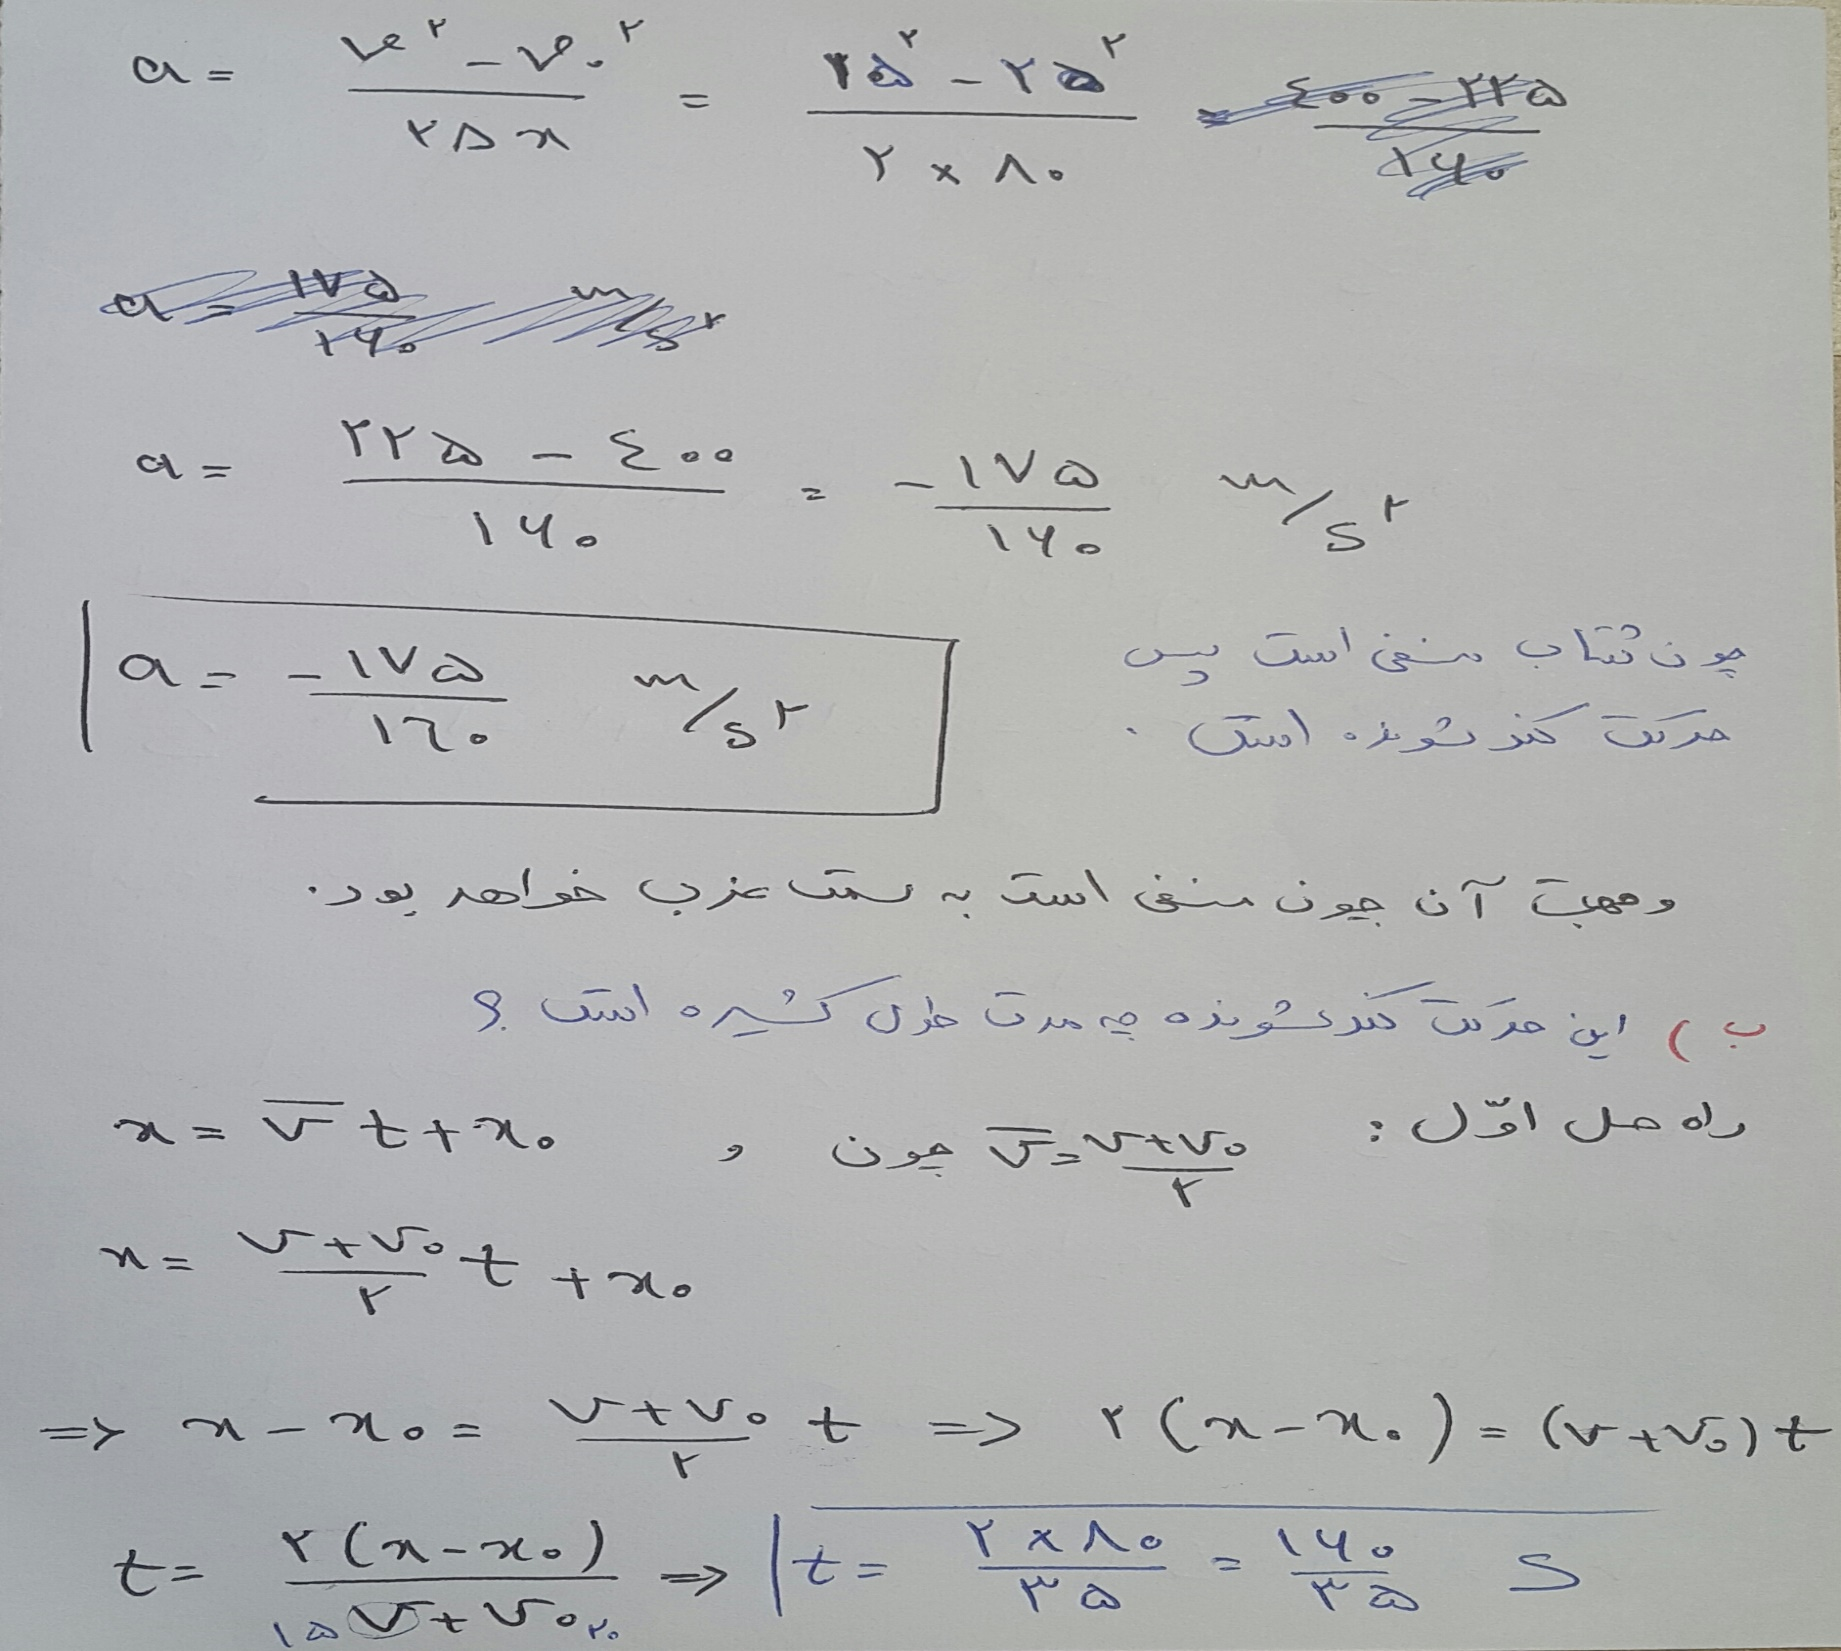 a = (v² - v₀²) / (۲Δx) = (۱۵² - ۲۵²) / (۲ × ۸۰) = (٤۰۰ - ۲۲۵) / ۱۶۰
a = ۱۷۵ / ۱۶۰ m/s²
a = (۲۲۵ - ٤۰۰) / ۱۶۰ = -۱۷۵ / ۱۶۰ m/s²
a = -۱۷۵ / ۱٦۰ m/s²
چون شتاب منفی است پس
حرکت کند شونده است .
وجهت آن چون منفی است به سمت غرب خواهد بود.
ب ) این حرکت کند شونده چه مدت طول کشیده است ؟
راه حل اوّل : v̄ = (v+v₀) / ۲ چون و x = v̄ t + x₀
x = (v+v₀) / ۲ t + x₀
=> x - x₀ = (v+v₀) / ۲ t => ۲ (x - x₀) = (v+v₀) t
t = ۲ (x - x₀) / (v + v₀) => t = (۲ × ۸۰) / ۳۵ = ۱۶۰ / ۳۵ s
۱۵ ۲۰